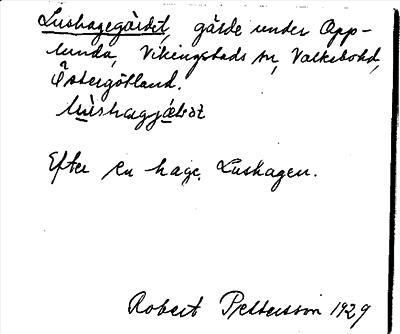 Lushagegärdet, gärde under Opp-
lunda, Vikingstads sn, Valkebo hd,
Östergötland.
lùshagjǽḷət
Efter en hage, Lushagen.
Robert Pettersson 1929